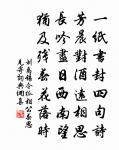 一紙書封四句詩
芳晨對酒遠相思
長吟盡日西南望
猶及殘春花落時
劉禹錫令狐相公春思
見寄詞典網集